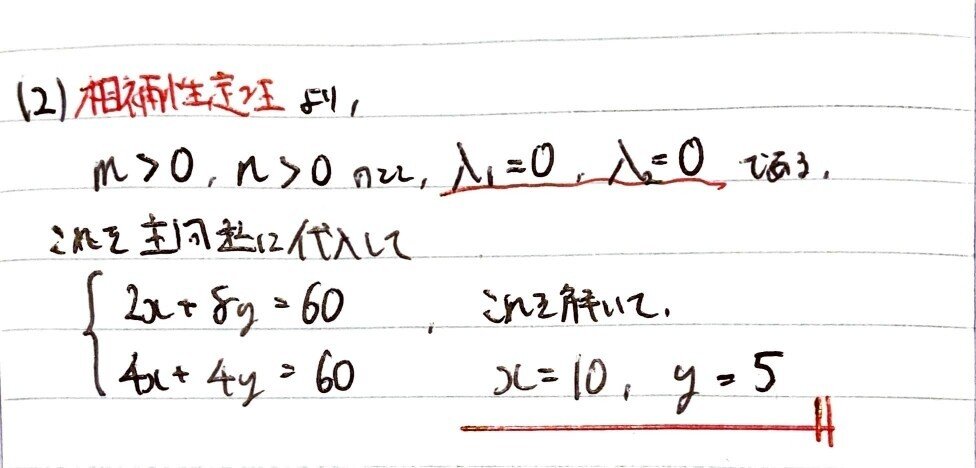 (2) 相補性定理 より,
m > 0, n > 0 のとき, λ₁ = 0, λ₂ = 0 である.
これを 主問題に代入して
2x + 8y = 60
4x + 4y = 60 , これを解いて.
x = 10, y = 5